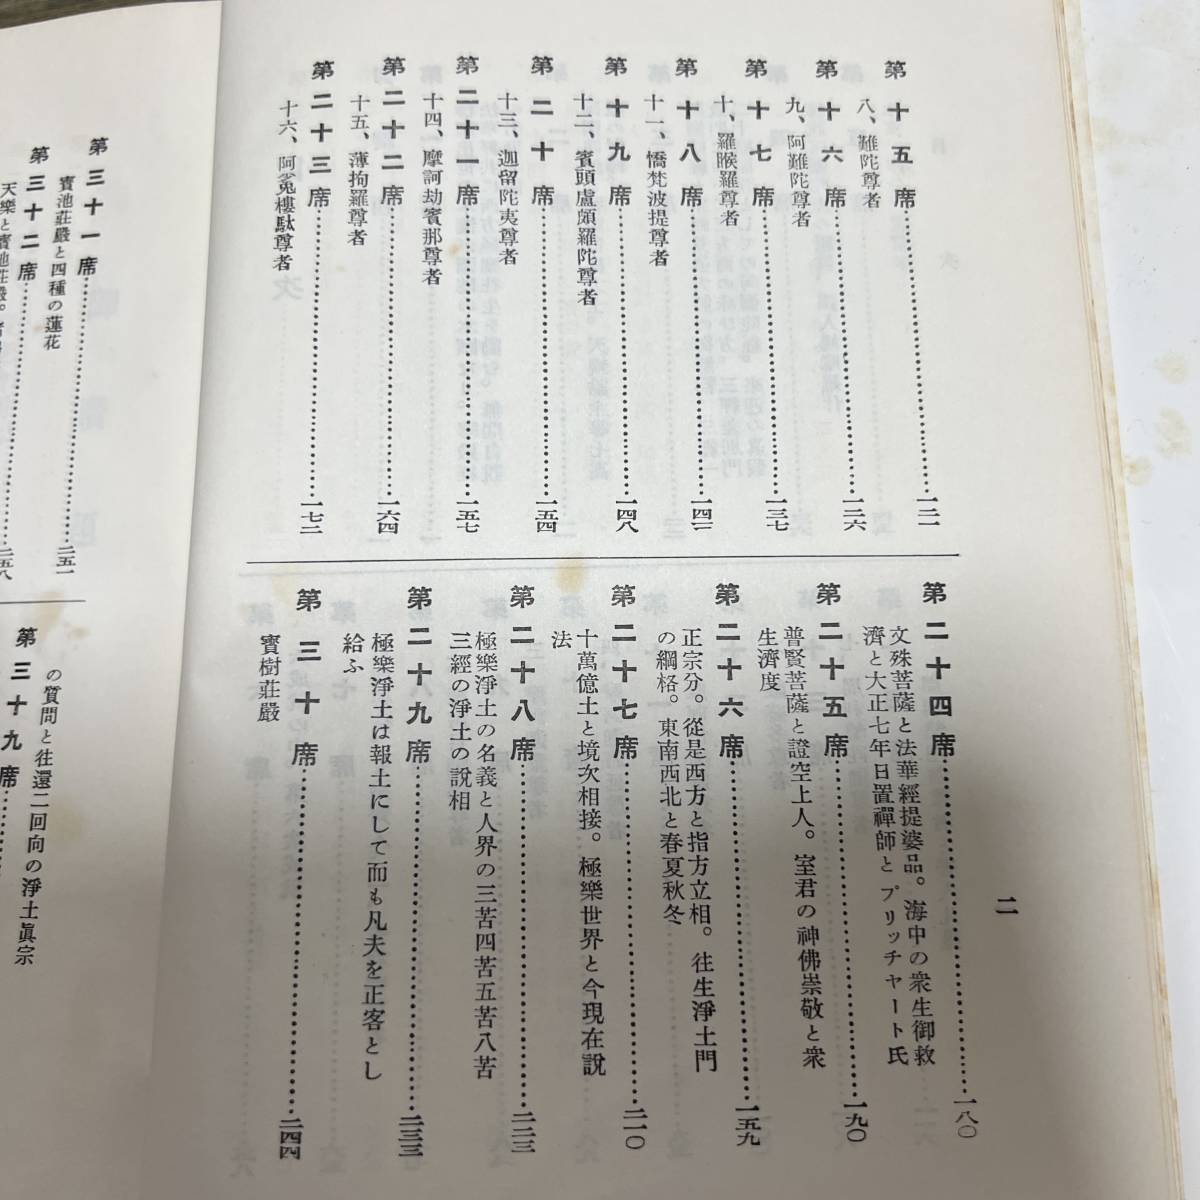 二
第十五席……一二一
八、難陀尊者
第十六席……一二六
九、阿難陀尊者
第十七席……一三七
十、羅睺羅尊者
第十八席……一四二
十一、憍梵波提尊者
第十九席……一四八
十二、賓頭盧頗羅陀尊者
第二十席……一五四
十三、迦留陀夷尊者
第二十一席……一五七
十四、摩訶劫賓那尊者
第二十二席……一六四
十五、薄拘羅尊者
第二十三席……一七二
十六、阿㝹樓駄尊者
第二十四席……一八〇
文殊菩薩と法華經提婆品。海中の衆生御救
濟と大正七年日置禪師とプリッチャート氏
第二十五席……一九〇
普賢菩薩と證空上人。室君の神佛崇敬と衆
生濟度
第二十六席……一五九
正宗分。從是西方と指方立相。往生淨土門
の綱格。東南西北と春夏秋冬
第二十七席……二一〇
十萬億土と境次相接。極樂世界と今現在說
法
第二十八席……二二三
極樂淨土の名義と人界の三苦四苦五苦八苦
三經の淨土の說相
第二十九席……二三三
極樂淨土は報土にして而も凡夫を正客とし
給ふ
第三十席……二四四
寶樹莊嚴
第三十一席……二五一
寶池莊嚴と四種の蓮花
第三十二席……二五八
天樂と寶池莊嚴。
の質問と往還二回向の淨土眞宗
第三十九席……